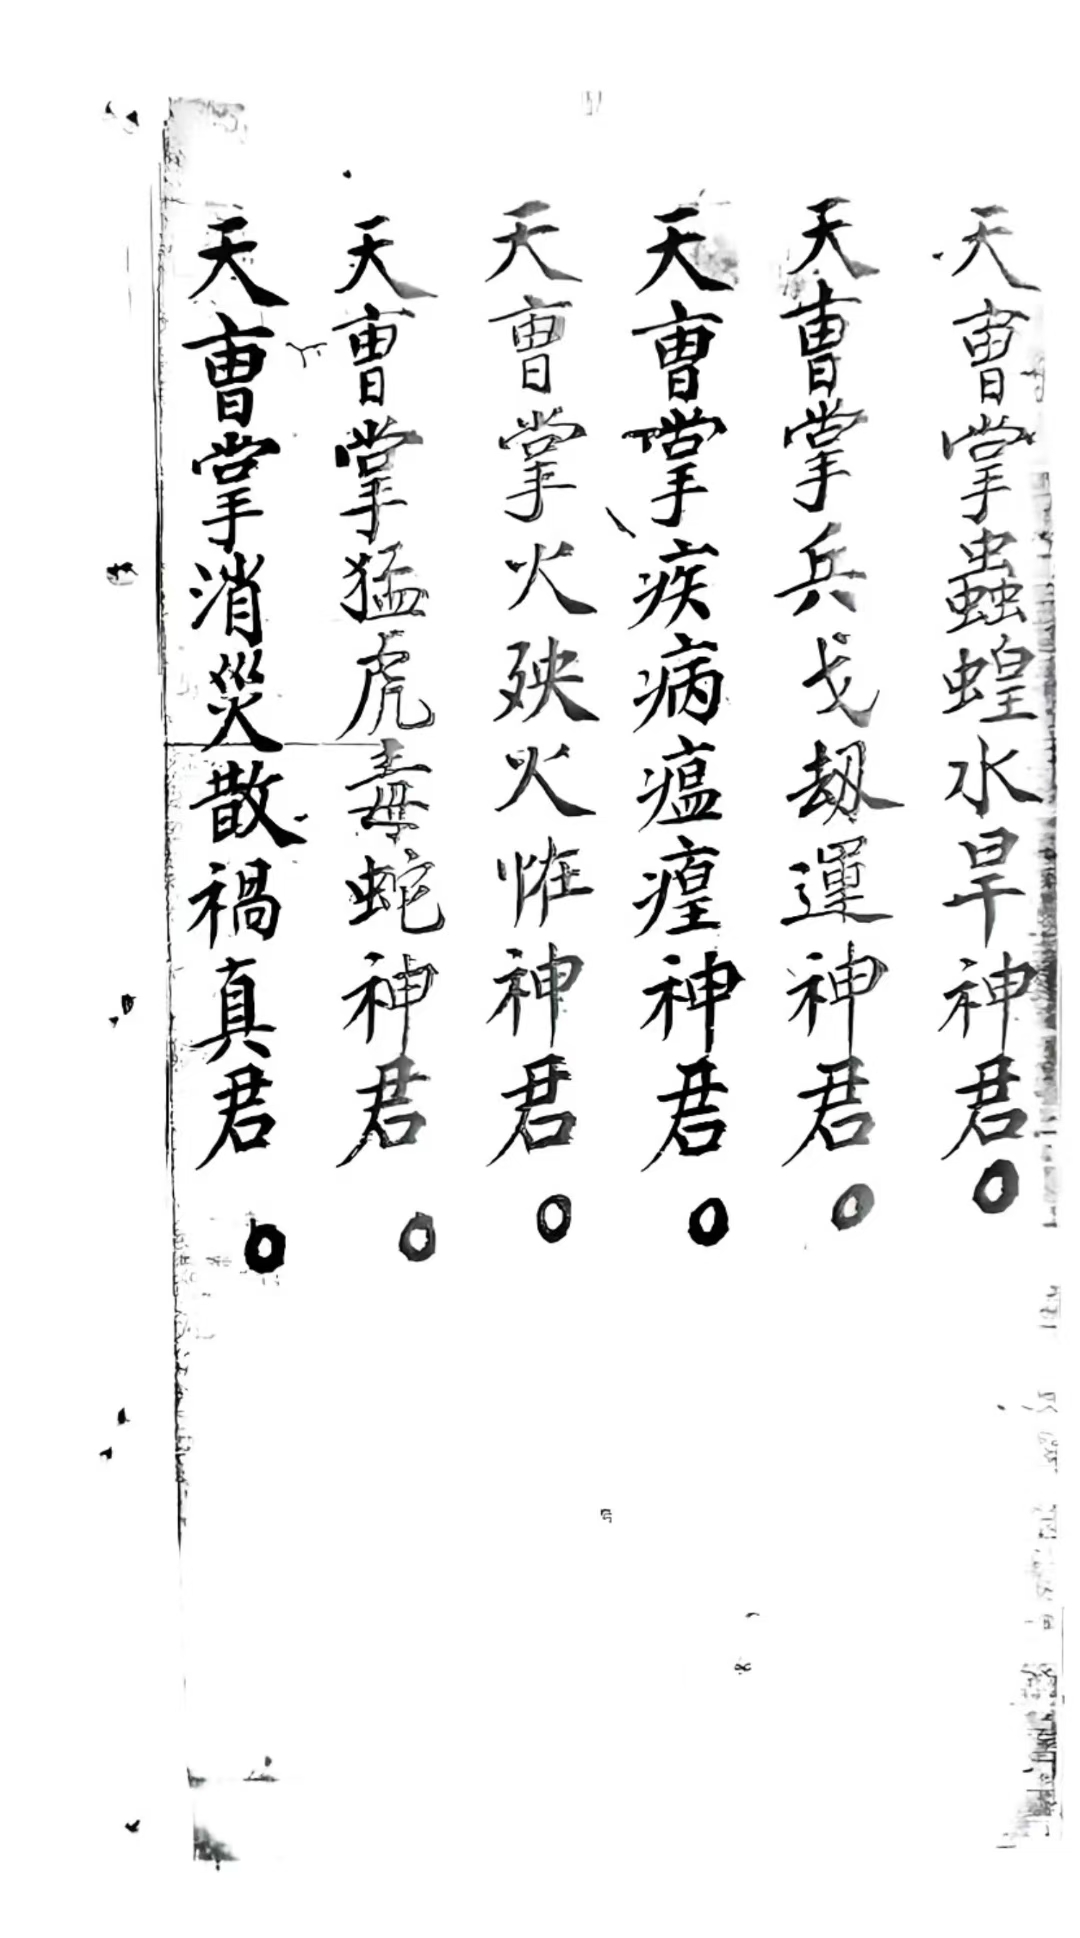 天曹掌蟲蝗水旱神君〇
天曹掌兵戈刼運神君〇
天曹掌疾病瘟㾮神君〇
天曹掌火殃火恠神君〇
天曹掌猛虎毒蛇神君〇
天曹掌消災散禍真君〇